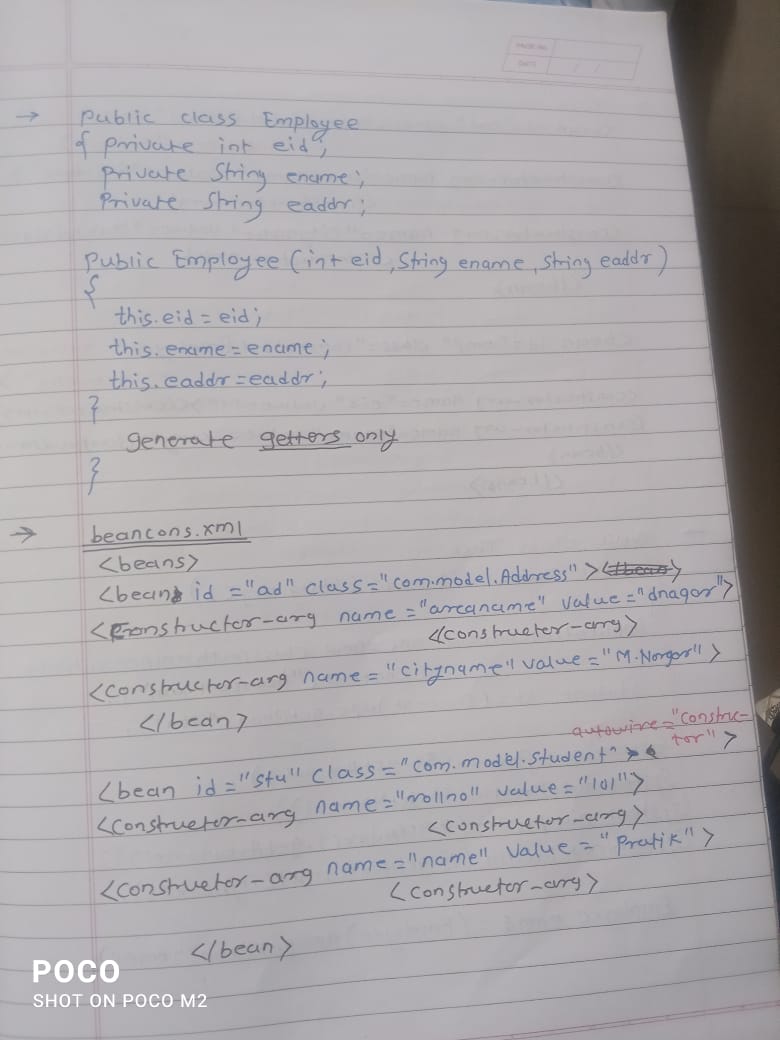 PAGE NO.
DATE
→ Public class Employee
{ private int eid;
private String ename;
Private String eaddr;
Public Employee (int eid, String ename, String eaddr)
{
this.eid = eid;
this.ename = ename;
this.eaddr = eaddr;
}
generate getters only
}
→ beancons.xml
<beans>
<bean id = "ad" class = "com.model.Address" >
<constructor-arg name = "areaname" value = "dnagar">
<constructor-arg>
<constructor-arg name = "cityname" value = "M.Nagar" >
</bean>
autowire = "constru-
tor" >
<bean id = "stu" class = "com.model.student"
<constructor-arg name = "rollno" value = "101">
<constructor-arg>
<constructor-arg name = "name" value = "Pratik" >
<constructor-arg>
</bean>
POCO
SHOT ON POCO M2